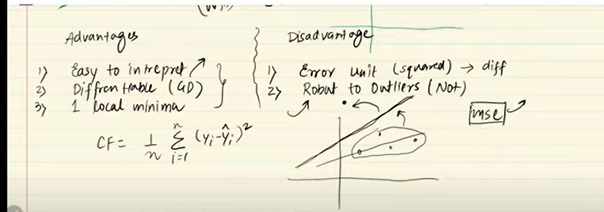 Advantages
1) Easy to intrepret
2) Diffrentiable (GD)
3) 1 local minima
CF = 1/n Σ i=1 n (yi-ŷi)²
Disadvantage
1) Error unit (squared) → diff
2) Robust to Outliers (Not)
mse